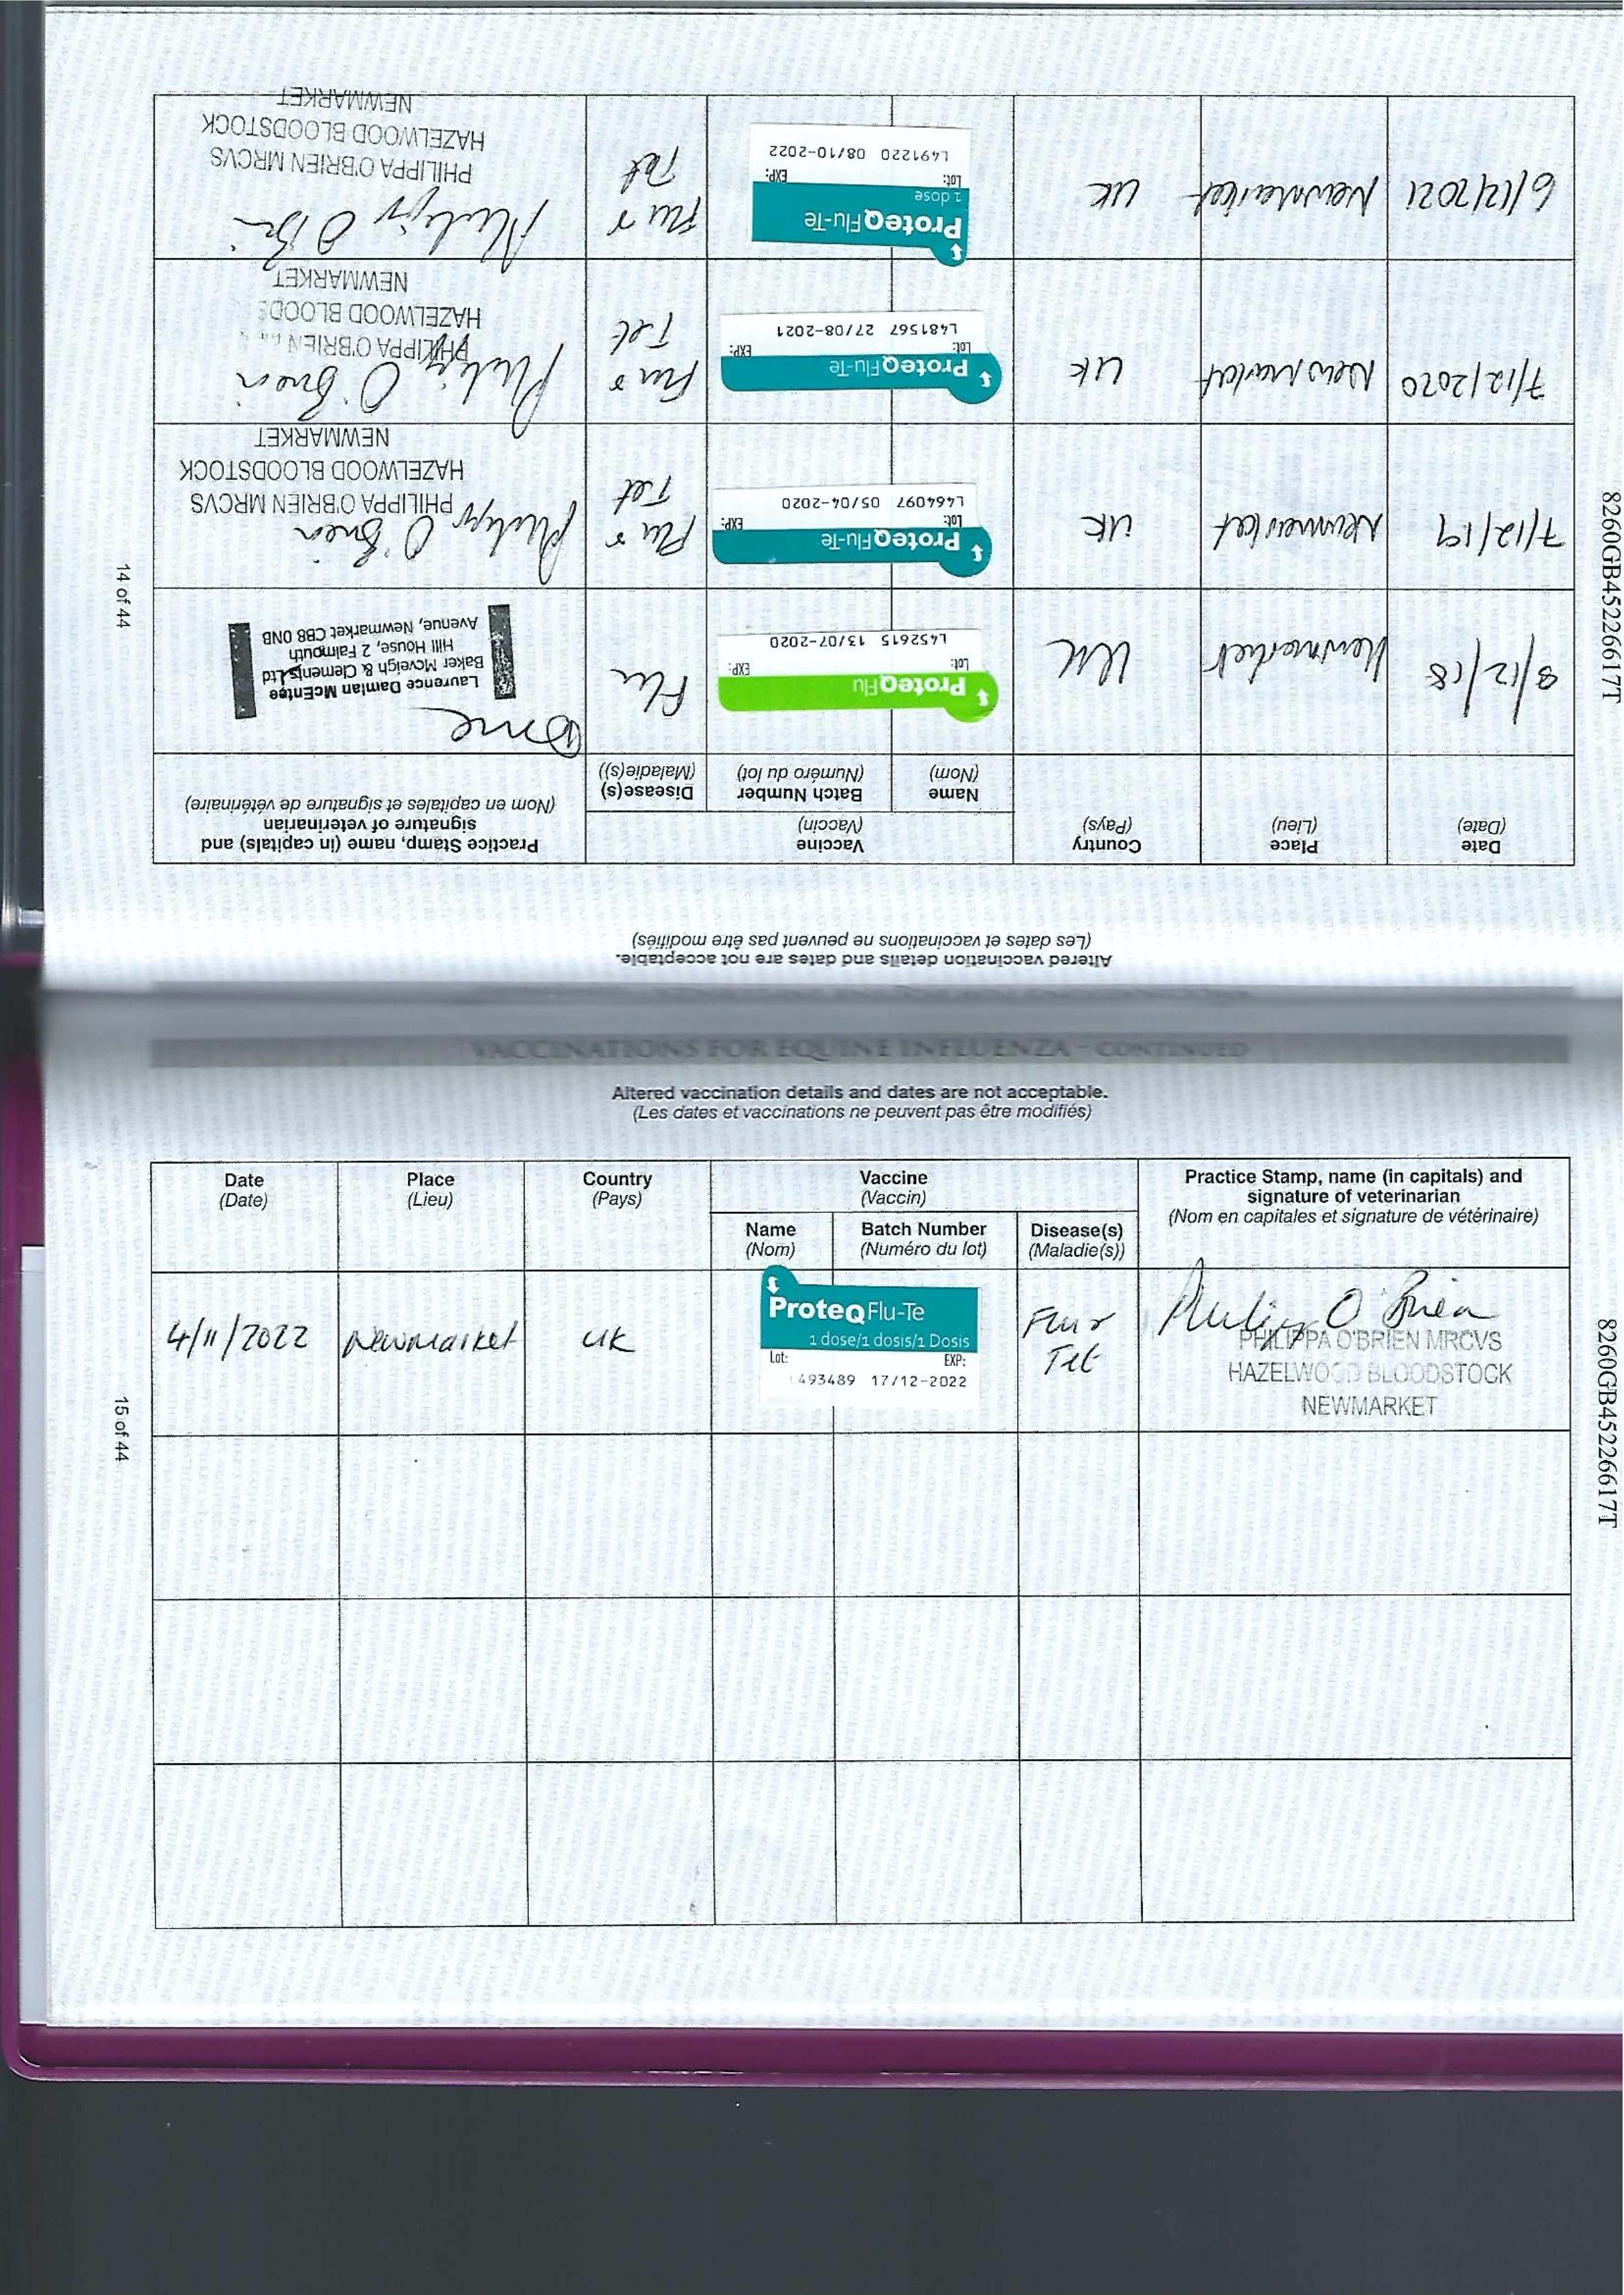 Altered vaccination details and dates are not acceptable.
(Les dates et vaccinations ne peuvent pas être modifiés)
Date
(Date)
Place
(Lieu)
Country
(Pays)
Vaccine
(Vaccin)
Name
(Nom)
Batch Number
(Numéro du lot)
Disease(s)
(Maladie(s))
Practice Stamp, name (in capitals) and
signature of veterinarian
(Nom en capitales et signature de vétérinaire)
8/12/18
Newmarket
UK
ProteqFlu
Lot: EXP:
L452615 13/07-2020
Flu
Laurence Damian McEntee
Baker Mcveigh & Clements Ltd
Hill House, 2 Falmouth
Avenue, Newmarket CB8 0NB
7/12/19
Newmarket
UK
ProteqFlu-Te
Lot: EXP:
L464097 05/04-2020
Flu &
Tet
Philippa O'Brien
PHILIPPA O'BRIEN MRCVS
HAZELWOOD BLOODSTOCK
NEWMARKET
7/12/2020
Newmarket
UK
ProteqFlu-Te
Lot: EXP:
L481567 27/08-2021
Flu &
Tet
Philippa O'Brien
PHILIPPA O'BRIEN
HAZELWOOD BLOODS
NEWMARKET
6/12/2021
Newmarket
UK
ProteqFlu-Te
1 dose
Lot: EXP:
L491220 08/10-2022
Flu &
Tet
Philippa O'Bri
PHILIPPA O'BRIEN MRCVS
HAZELWOOD BLOODSTOCK
NEWMARKET
14 of 44
8260GB45226617T
VACCINATIONS FOR EQUINE INFLUENZA - CONTINUED
Altered vaccination details and dates are not acceptable.
(Les dates et vaccinations ne peuvent pas être modifiés)
Date
(Date)
Place
(Lieu)
Country
(Pays)
Vaccine
(Vaccin)
Name
(Nom)
Batch Number
(Numéro du lot)
Disease(s)
(Maladie(s))
Practice Stamp, name (in capitals) and
signature of veterinarian
(Nom en capitales et signature de vétérinaire)
4/11/2022
Newmarket
UK
ProteqFlu-Te
1 dose/1 dosis/1 Dosis
Lot: EXP:
493489 17/12-2022
Flu &
Tet
Philippa O'Brien
PHILIPPA O'BRIEN MRCVS
HAZELWOOD BLOODSTOCK
NEWMARKET
15 of 44
8260GB45226617T